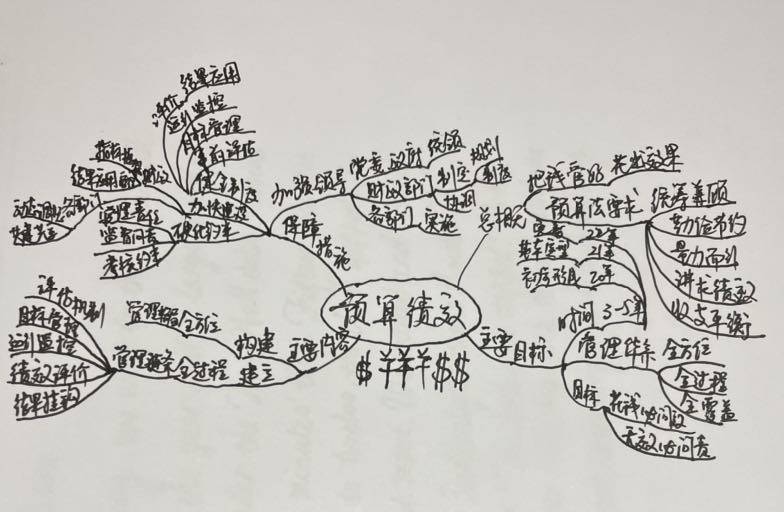 预算绩效
$¥¥¥$$
总概况
把钱管好
花出效果
预算法要求
统筹兼顾
勤俭节约
量力而行
讲求绩效
收支平衡
主要目标
时间
3-5年
22年
基本定型
21年
初步形成
20年
管理体系
全方位
全过程
全覆盖
目标
花钱必问效
无效必问责
主要内容
构建
全方位
管理格局
建立
全过程
管理链条
评估机制
目标管理
运行监控
绩效评价
结果挂钩
保障
措施
加强领导
党委政府
统领
财政部门
制定
规划
制度
协调
各部门
实施
加快建设
健全制度
事前评估
目标管理
运行监控
评价
结果应用
财政
各部门
硬化约束
管理责任
监督问责
考核约束